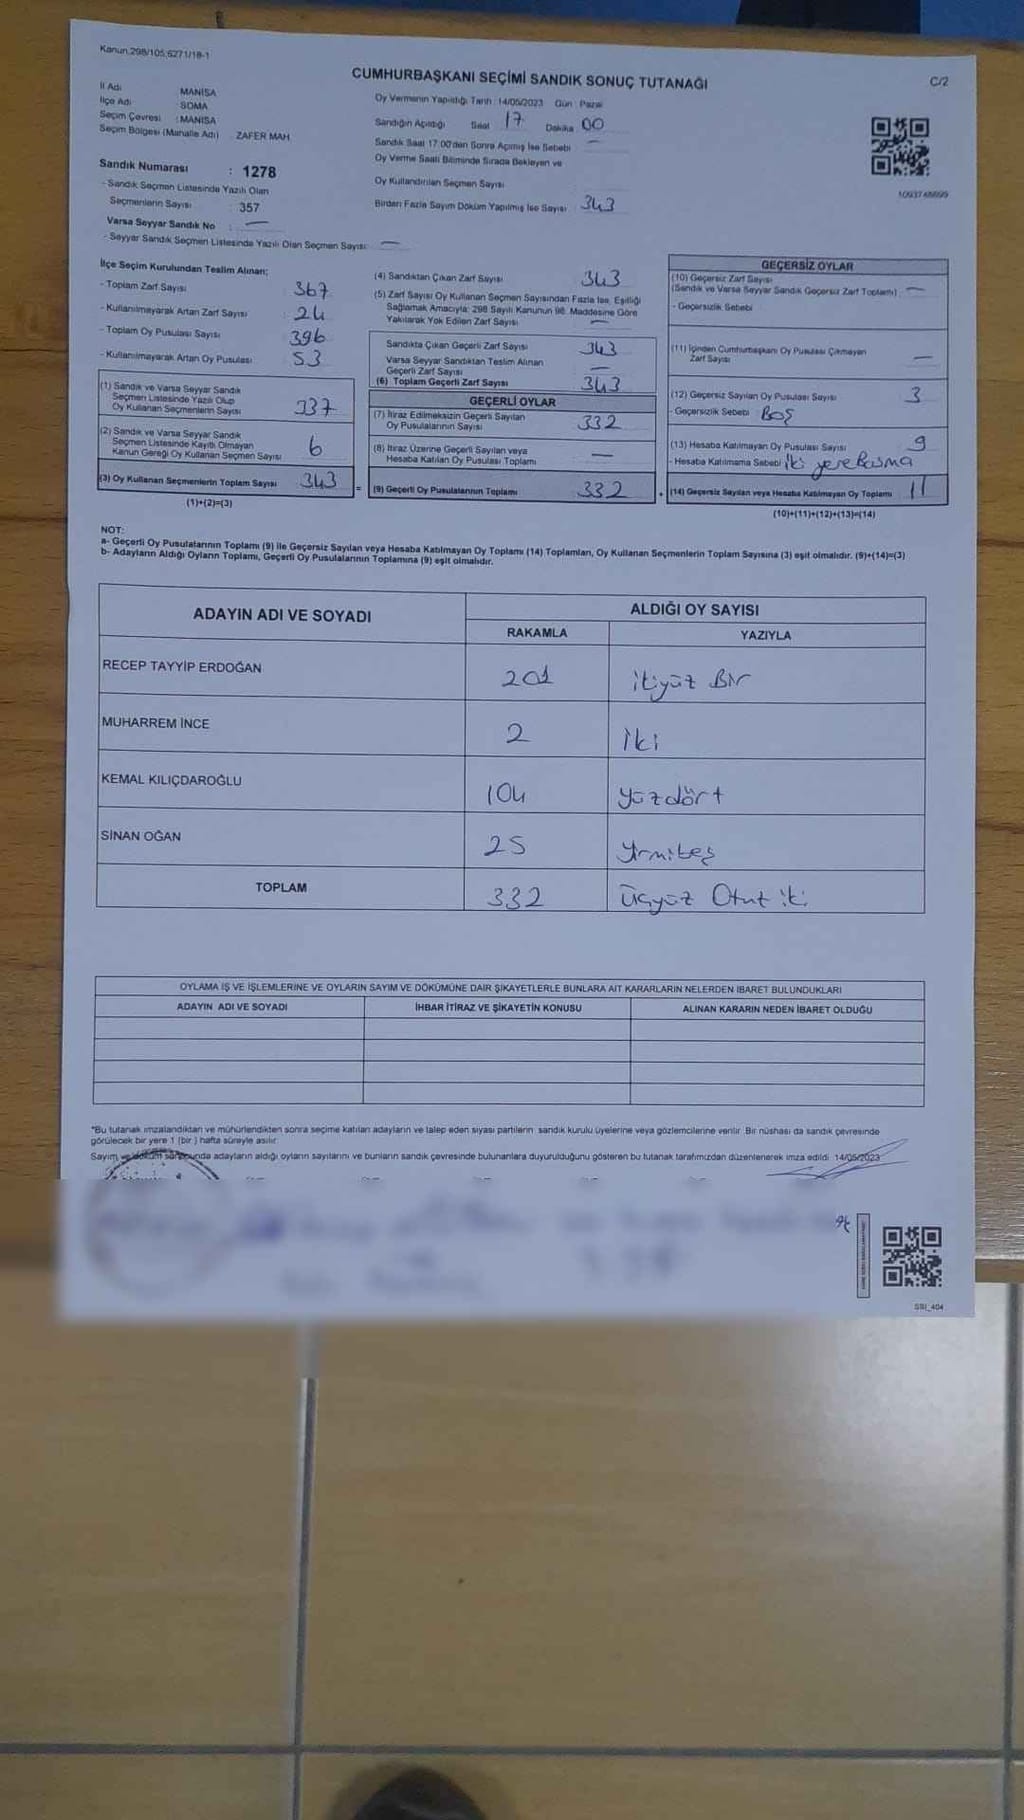 Kanun.298/105;6271/18-1
CUMHURBAŞKANI SEÇİMİ SANDIK SONUÇ TUTANAĞI
C/2
İl Adı MANİSA
İlçe Adı SOMA
Seçim Çevresi : MANİSA
Seçim Bölgesi (Mahalle Adı) ZAFER MAH.
Oy Vermenin Yapıldığı Tarih 14/05/2023 Gün Pazar
Sandığın Açıldığı Saat 17 Dakika 00
Sandık Saat 17.00'den Sonra Açılmış İse Sebebi —
Oy Verme Saati Bitiminde Sırada Bekleyen ve
Oy Kullandırılan Seçmen Sayısı
Birden Fazla Sayım Döküm Yapılmış İse Sayısı 343
1093748699
Sandık Numarası : 1278
- Sandık Seçmen Listesinde Yazılı Olan
Seçmenlerin Sayısı 357
Varsa Seyyar Sandık No —
- Seyyar Sandık Seçmen Listesinde Yazılı Olan Seçmen Sayısı: —
İlçe Seçim Kurulundan Teslim Alınan;
- Toplam Zarf Sayısı 367
- Kullanılmayarak Artan Zarf Sayısı 24
- Toplam Oy Pusulası Sayısı 396
- Kullanılmayarak Artan Oy Pusulası 53
(1) Sandık ve Varsa Seyyar Sandık
Seçmen Listesinde Yazılı Olup
Oy Kullanan Seçmenlerin Sayısı 337
(2) Sandık ve Varsa Seyyar Sandık
Seçmen Listesinde Kayıtlı Olmayan
Kanun Gereği Oy Kullanan Seçmen Sayısı 6
(3) Oy Kullanan Seçmenlerin Toplam Sayısı 343
(1)+(2)=(3)
(4) Sandıktan Çıkan Zarf Sayısı 343
(5) Zarf Sayısı Oy Kullanan Seçmen Sayısından Fazla İse, Eşitliği
Sağlamak Amacıyla; 298 Sayılı Kanunun 98. Maddesine Göre
Yakılarak Yok Edilen Zarf Sayısı —
Sandıkta Çıkan Geçerli Zarf Sayısı 343
Varsa Seyyar Sandıktan Teslim Alınan
Geçerli Zarf Sayısı —
(6) Toplam Geçerli Zarf Sayısı 343
GEÇERLİ OYLAR
(7) İtiraz Edilmeksizin Geçerli Sayılan
Oy Pusulalarının Sayısı 332
(8) İtiraz Üzerine Geçerli Sayılan veya
Hesaba Katılan Oy Pusulası Toplamı —
= (9) Geçerli Oy Pusulalarının Toplamı 332
GEÇERSİZ OYLAR
(10) Geçersiz Zarf Sayısı
(Sandık ve Varsa Seyyar Sandık Geçersiz Zarf Toplamı) —
- Geçersizlik Sebebi
(11) İçinden Cumhurbaşkanı Oy Pusulası Çıkmayan
Zarf Sayısı —
(12) Geçersiz Sayılan Oy Pusulası Sayısı 3
- Geçersizlik Sebebi BOŞ
(13) Hesaba Katılmayan Oy Pusulası Sayısı 9
- Hesaba Katılmama Sebebi iki yere Basma
+ (14) Geçersiz Sayılan veya Hesaba Katılmayan Oy Toplamı 11
(10)+(11)+(12)+(13)=(14)
NOT:
a- Geçerli Oy Pusulalarının Toplamı (9) ile Geçersiz Sayılan veya Hesaba Katılmayan Oy Toplamı (14) Toplamları, Oy Kullanan Seçmenlerin Toplam Sayısına (3) eşit olmalıdır. (9)+(14)=(3)
b- Adayların Aldığı Oyların Toplamı, Geçerli Oy Pusulalarının Toplamına (9) eşit olmalıdır.
ADAYIN ADI VE SOYADI ALDIĞI OY SAYISI
RAKAMLA YAZIYLA
RECEP TAYYİP ERDOĞAN 201 ikiyüz Bir
MUHARREM İNCE 2 İki
KEMAL KILIÇDAROĞLU 104 yüzdört
SİNAN OĞAN 25 yirmibeş
TOPLAM 332 Üçyüz Otuz iki
OYLAMA İŞ VE İŞLEMLERİNE VE OYLARIN SAYIM VE DÖKÜMÜNE DAİR ŞİKAYETLERLE BUNLARA AİT KARARLARIN NELERDEN İBARET BULUNDUKLARI
ADAYIN ADI VE SOYADI İHBAR İTİRAZ VE ŞİKAYETİN KONUSU ALINAN KARARIN NEDEN İBARET OLDUĞU
*Bu tutanak imzalandıktan ve mühürlendikten sonra seçime katılan adayların ve talep eden siyasi partilerin sandık kurulu üyelerine veya gözlemcilerine verilir. Bir nüshası da sandık çevresinde
görülecek bir yere 1 (bir) hafta süreyle asılır.
Sayım ve döküm sonucunda adayların aldığı oyların sayılarını ve bunların sandık çevresinde bulunanlara duyurulduğunu gösteren bu tutanak tarafımızdan düzenlenerek imza edildi. 14/05/2023
SSI_404